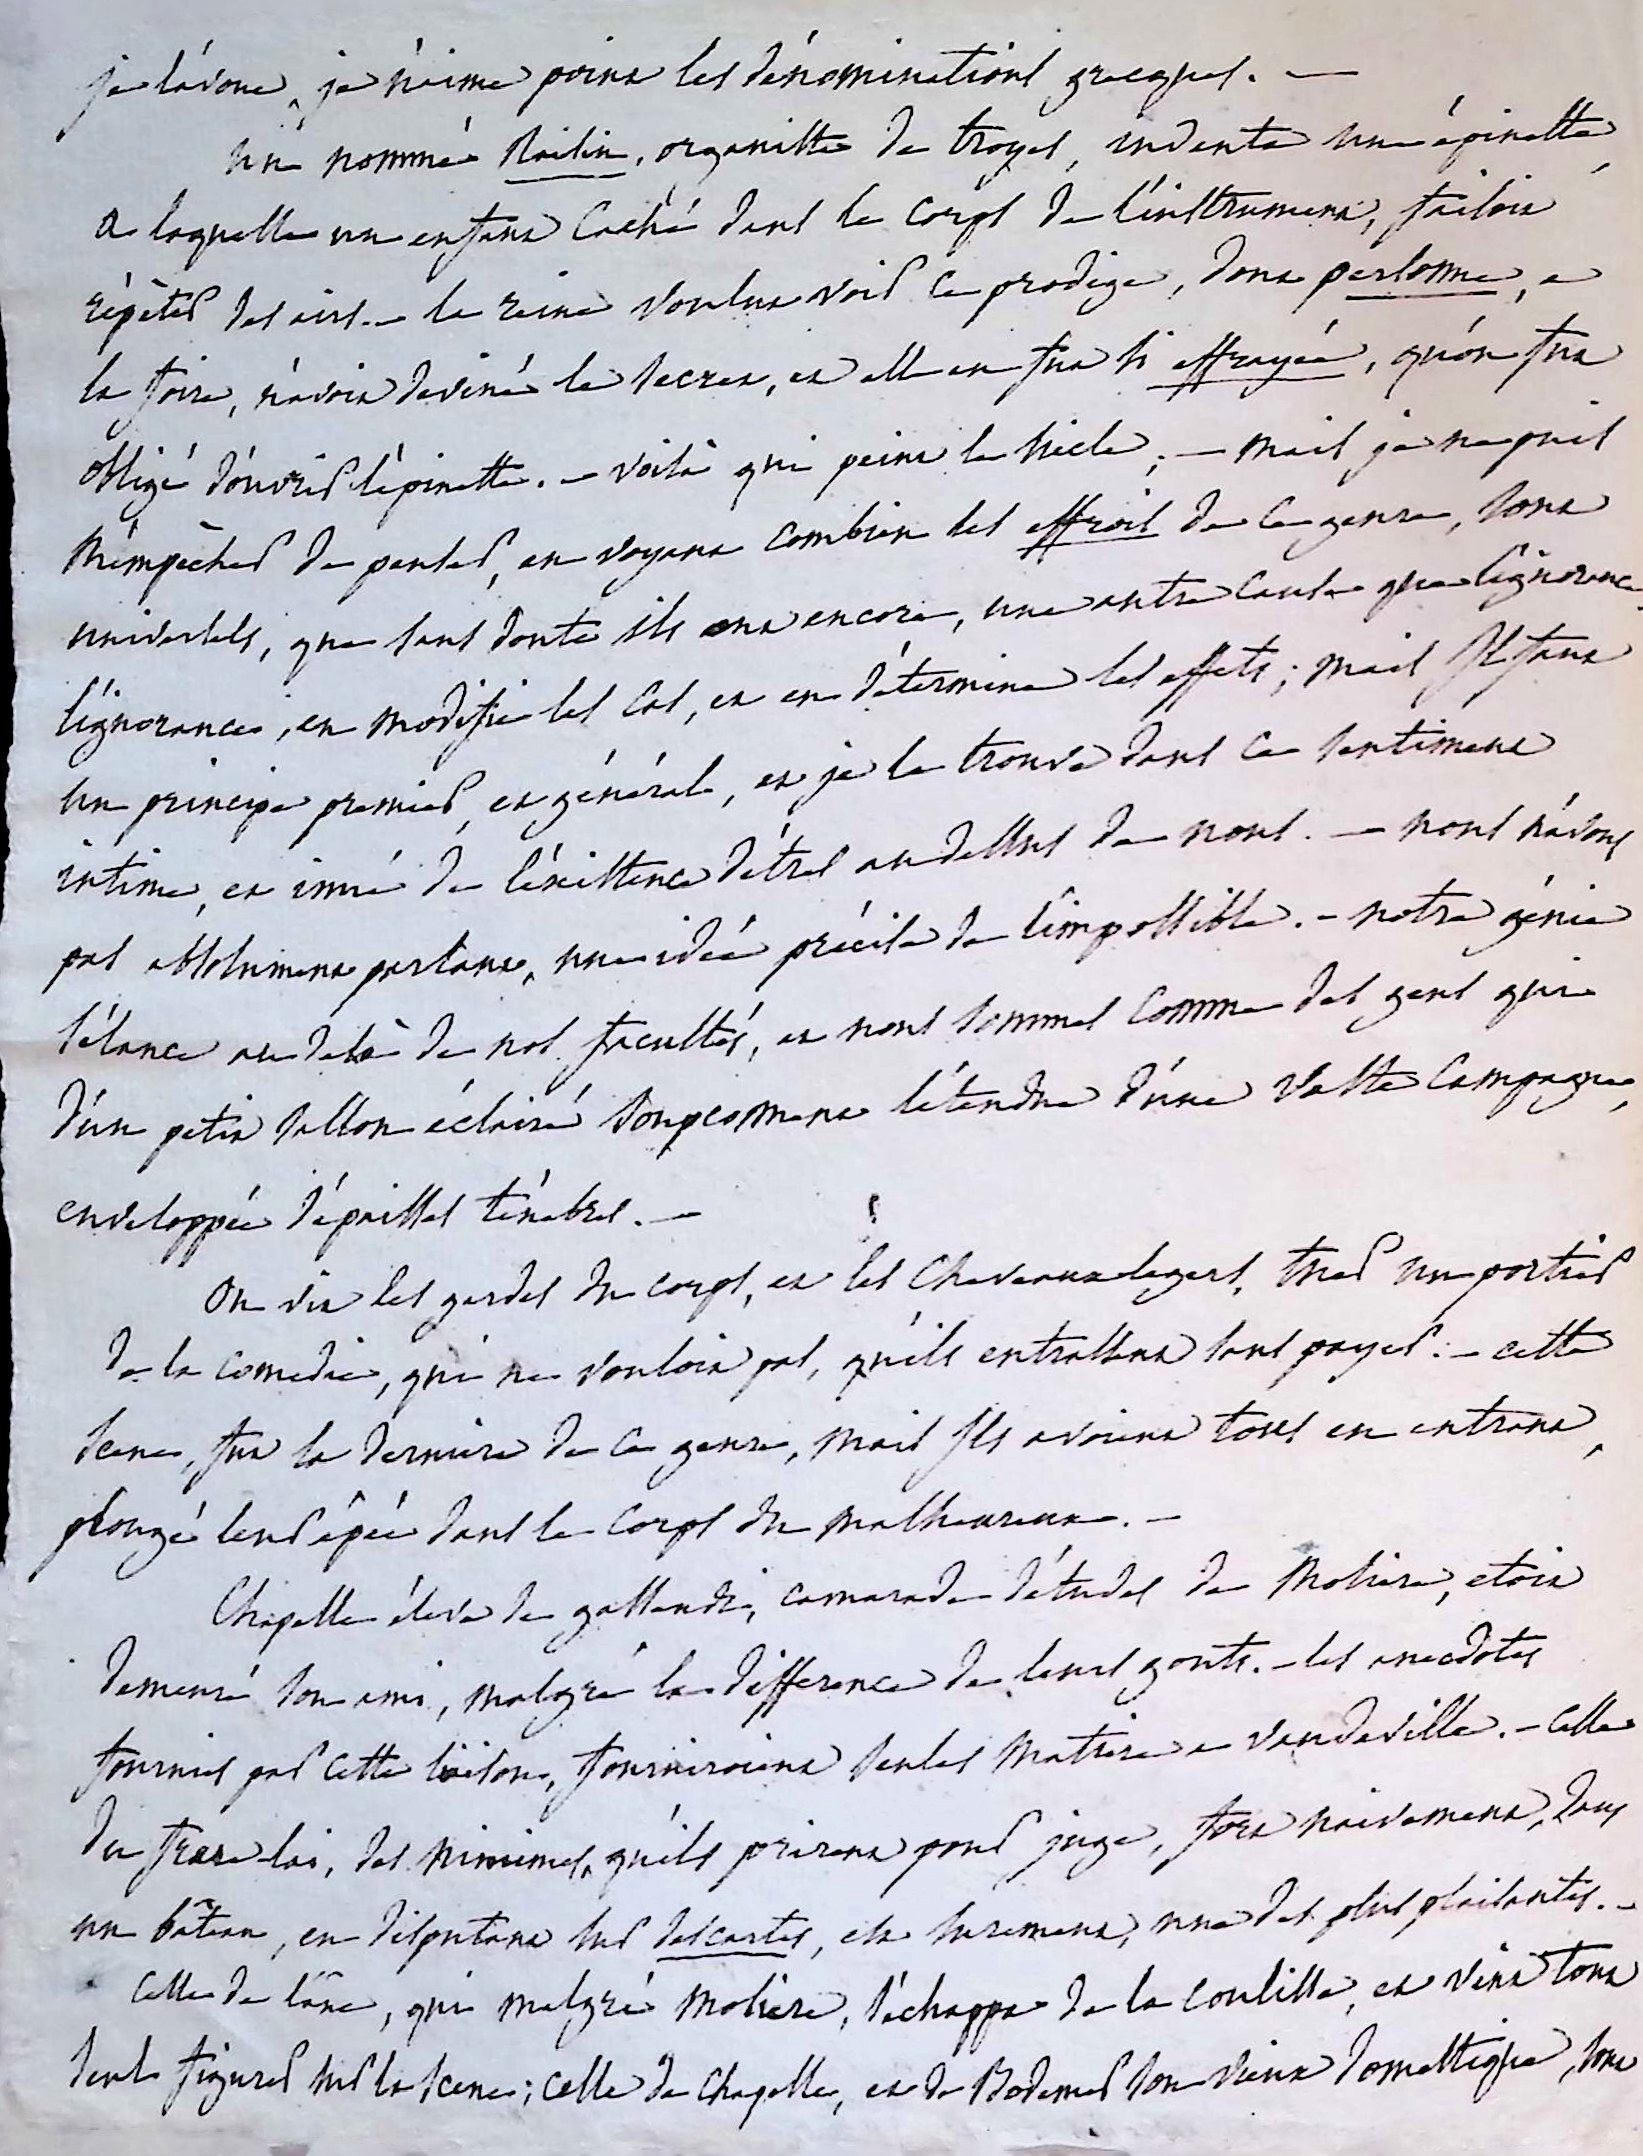 je l'avoue, je n'aime point les dénominations grecques. —
un nommé Raisin, organiste de troyes, inventa une épinette,
a laquelle un enfant caché dans le corps de l'instrument, faisoit
répéter des airs. – la reine voulut voir ce prodige, dont personne, a
la foire, n'avoit deviné le secret, et elle en fut si effrayée, qu'on fut
obligé d'ouvrir l'épinette. – voilà qui peint le siècle; – mais je ne puis
m'empêcher de penser, en voyant combien les effrois de ce genre, sont
universels, que sans doute ils ont encore, une autre cause que l'ignorance.
l'ignorance, en modifie les cas, et en détermine les effets; mais il faut
un principe premier, et générale, et je le trouve dans ce sentiment
intime, et inné de l'existence d'êtres au dessus de nous. — nous n'avons
pas absolument partant, une idée précise de l'impossible. – notre génie
s'élance au delà de nos facultés, et nous sommes comme des gens qui
d'un petit sallon éclairé soupconnent l'étendue d'une vaste campagne,
enveloppée d'épaisses ténèbres. —
On vit les gardes du corps, et les chevaux legers, tuer un portier
de la comedie, qui ne vouloit pas, qu'ils entrassent sans payer. – cette
scene, fut la derniere de ce genre, mais ils avoient tous en entrant,
plongé leur épée dans le corps du malheureux. –
Chapelle élève de gassendi, camarade d'études de Moliere, etoit
demeuré son ami, malgré la difference de leurs gouts. – les anecdotes
fournies par cette liaison, fourniroient seules matiere a vaudeville. – celle
du frere lai, des minimes, qu'ils prirent pour juge, fort naivement, dans
un bâteau, en disputant sur descartes, est surement, une des plus plaisantes. –
celle de l'âne, qui malgré moliere, s'échappa de la coulisse, et vint tout
seul figurer sur la scene; celle de chapelle, et de Godemer son vieux domestique, sont